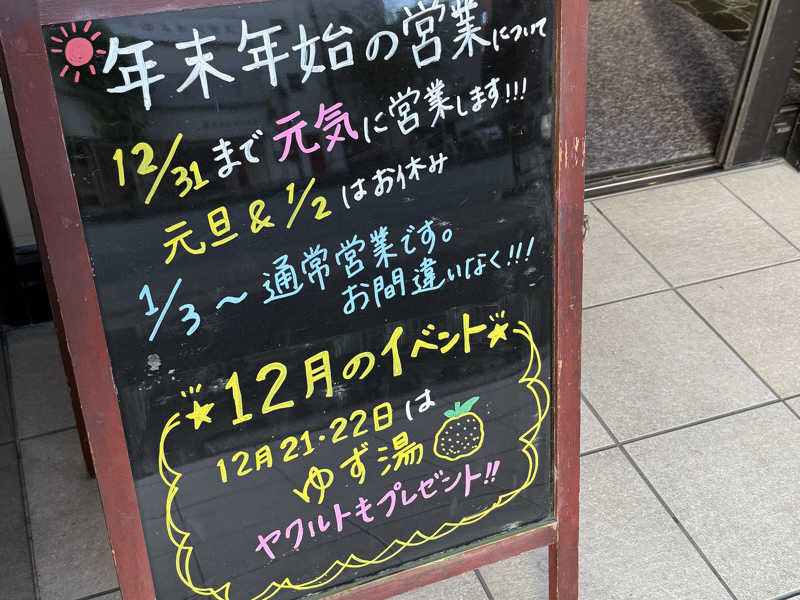 年末年始の営業について
12/31まで元気に営業します!!!
元旦&1/2はお休み
1/3~通常営業です。
お間違いなく!!!
12月のイベント
12月21・22日は
ゆず湯
ヤクルトもプレゼント!!